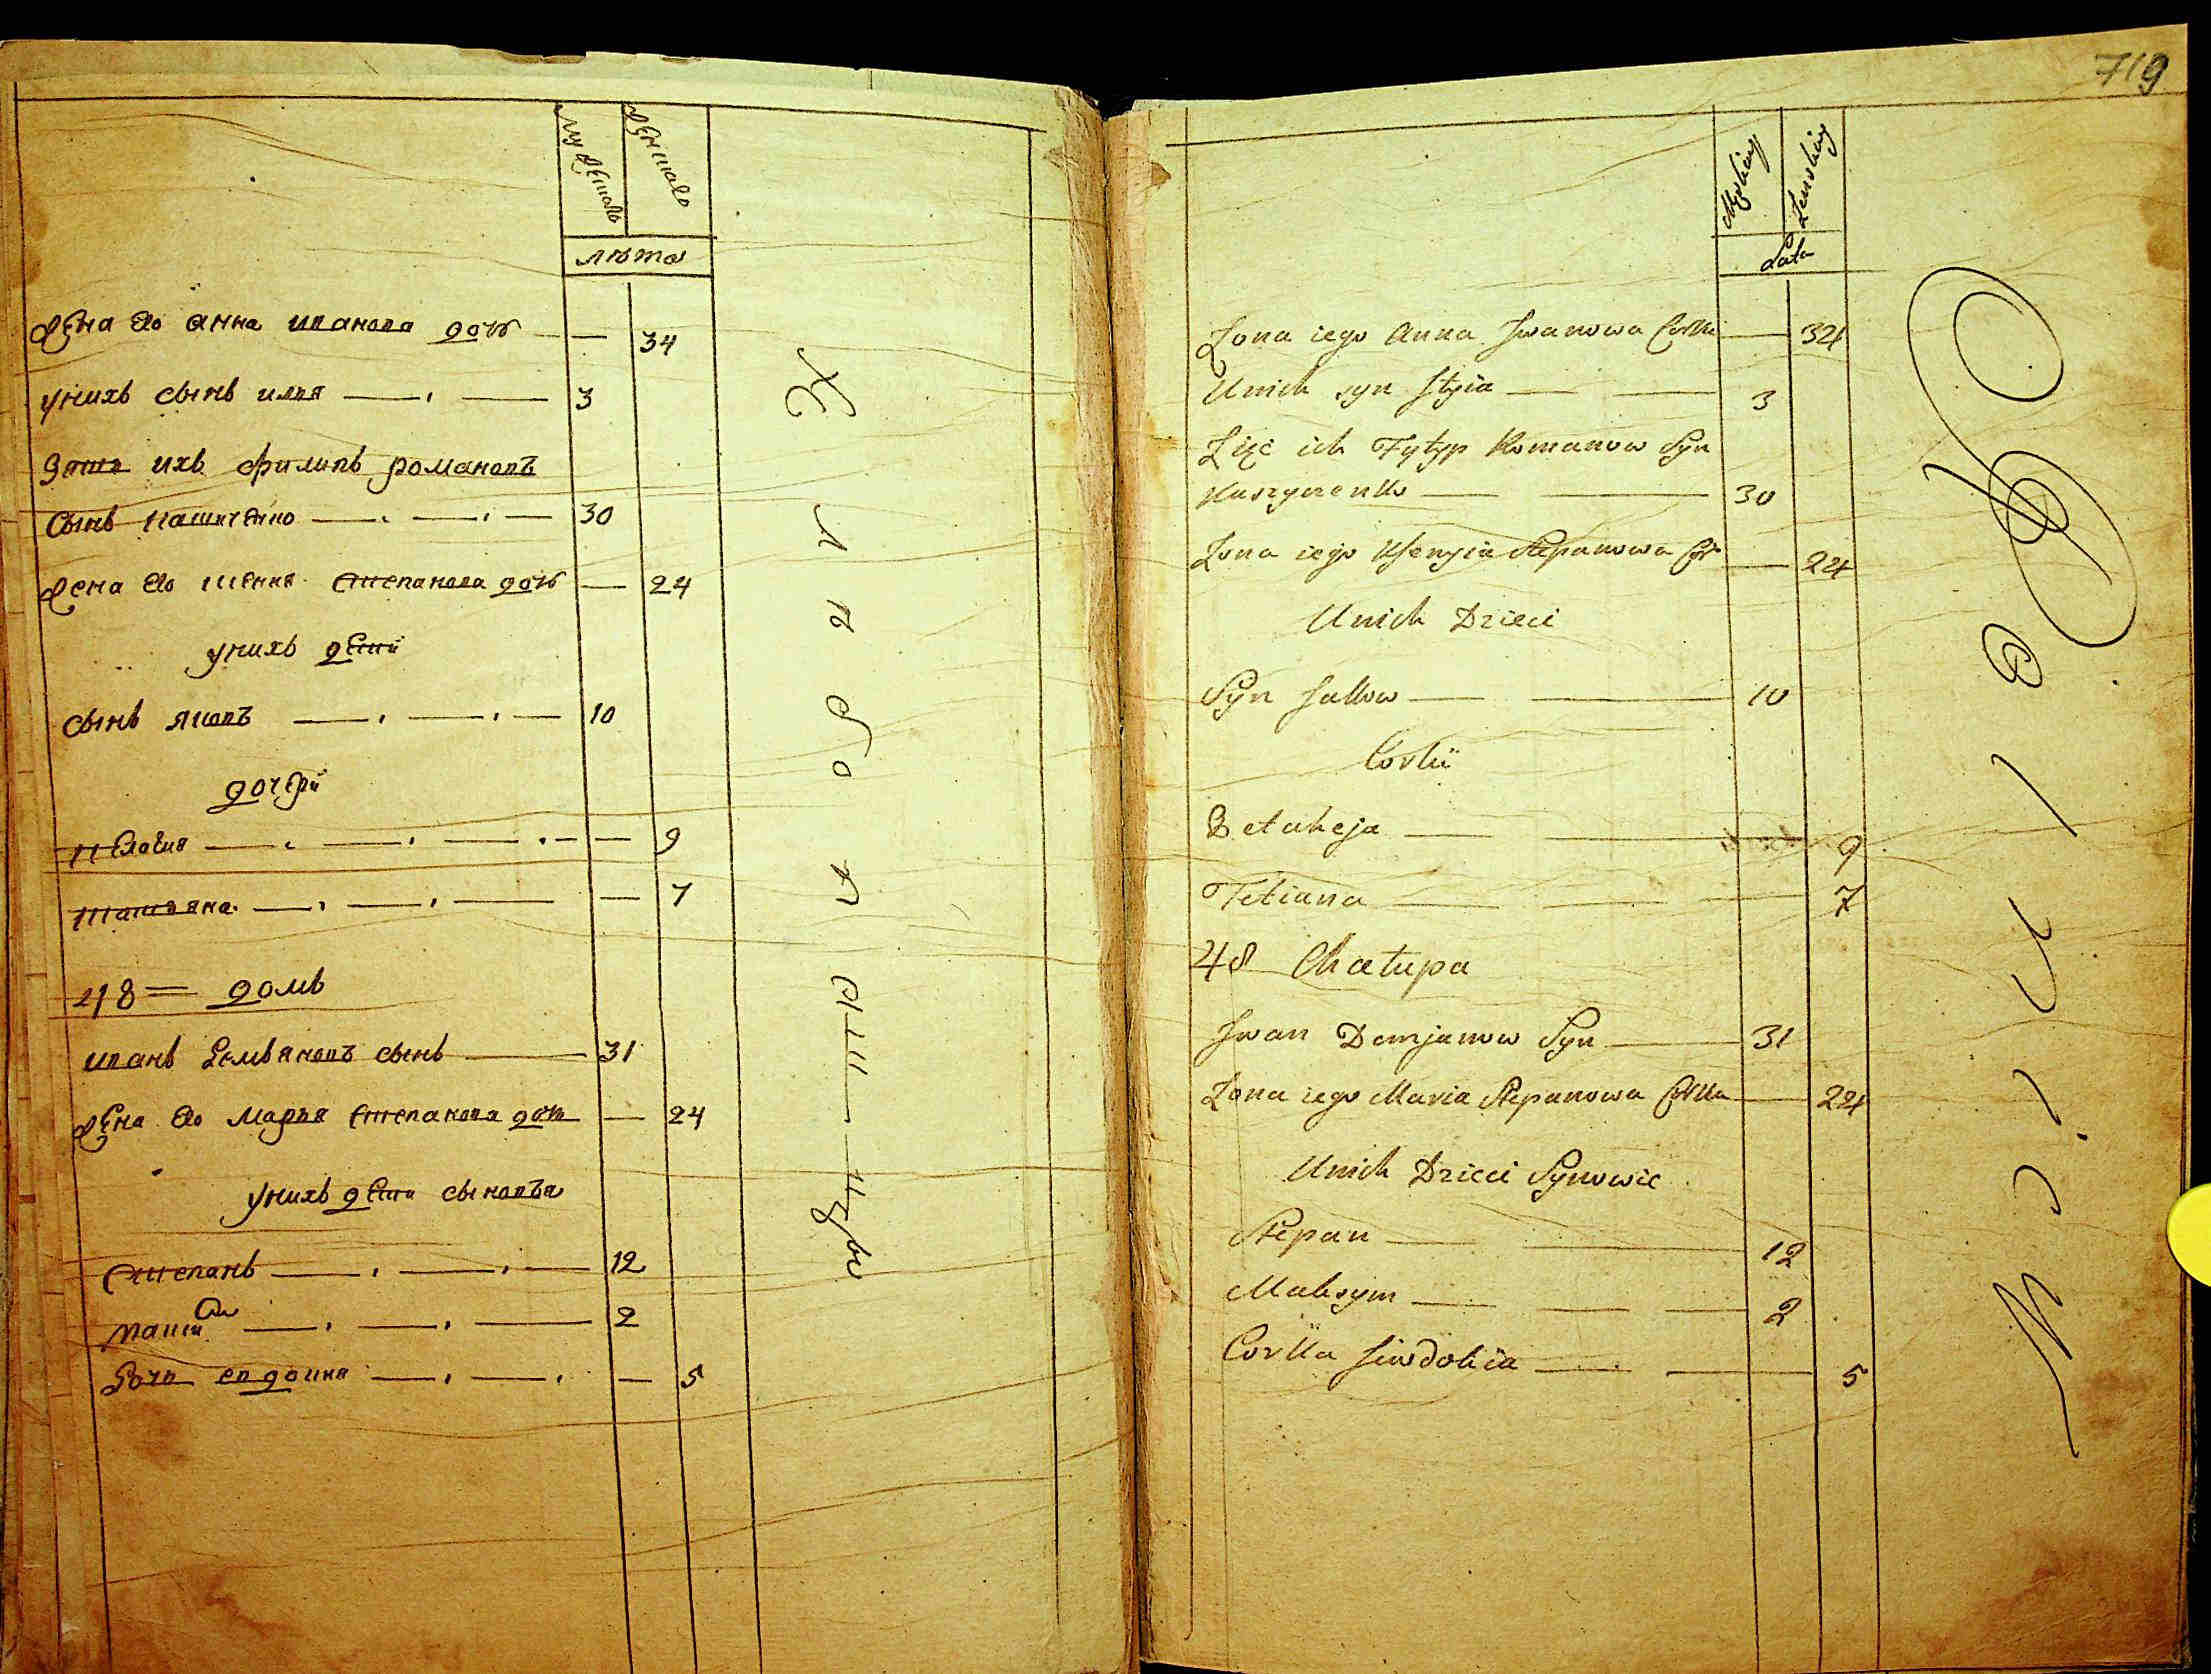 мужеска
женска
лѣта
жена его анна иванова дочь 34
унихъ сынъ илия 3
Зять ихъ филипъ романовъ
сынъ 30
жена его степанова дочь 24
унихъ дети
сынъ яковъ 10
дочери
пелагия 9
татьяна 7
48 домъ
иванъ демьяновъ сынъ 31
жена его марья степанова дочь 24
унихъ дети сыновья
степанъ 12
2
дочь евдокия 5
719
Męskiey
Zenskiey
Lata
Zona iego Anna Iwanowa Corka 34
Unich syn Ilyia 3
Zięć ich Fylyp Romanow Syn
30
Zona iego Stepanowa Cor 24
Unich Dzieci
Syn Jakow 10
Corki
Pelaheja 9
Tetiana 7
48 Chałupa
Iwan Demjanow Syn 31
Zona iego Maria Stepanowa Corka 24
Unich Dzieci Synowie
Stepan 12
Maksym 2
Corka Jiwdokia 5